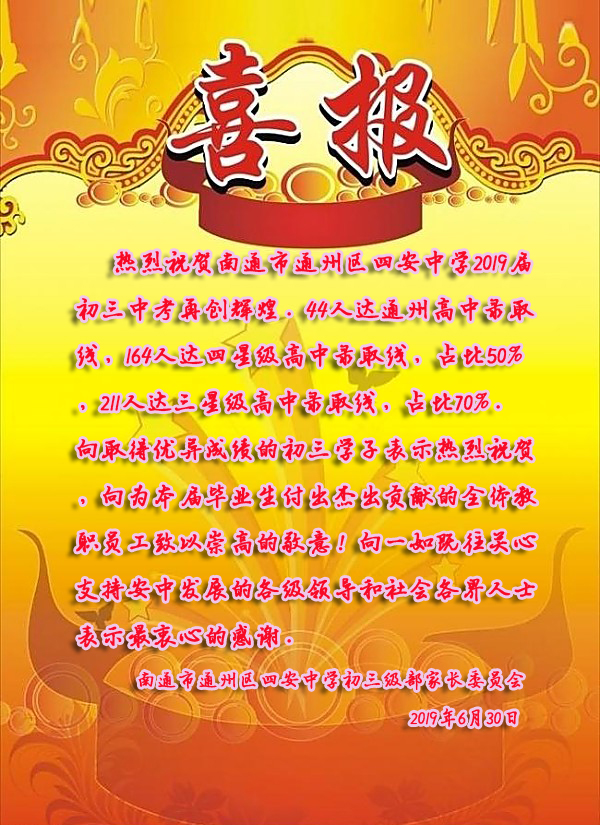 喜报
热烈祝贺南通市通州区四安中学2019届
初三中考再创辉煌．44人达通州高中录取
线，164人达四星级高中录取线，占比50%
，211人达三星级高中录取线，占比70%．
向取得优异成绩的初三学子表示热烈祝贺
，向为本届毕业生付出杰出贡献的全体教
职员工致以崇高的敬意！向一如既往关心
支持安中发展的各级领导和社会各界人士
表示最衷心的感谢．
南通市通州区四安中学初三级部家长委员会
2019年6月30日